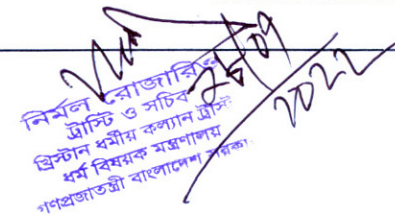 নির্মল রোজারিও
ট্রাস্টি ও সচিব
খ্রিস্টান ধর্মীয় কল্যান ট্রাস্ট
ধর্ম বিষয়ক মন্ত্রণালয়
গণপ্রজাতন্ত্রী বাংলাদেশ সরকা
2022